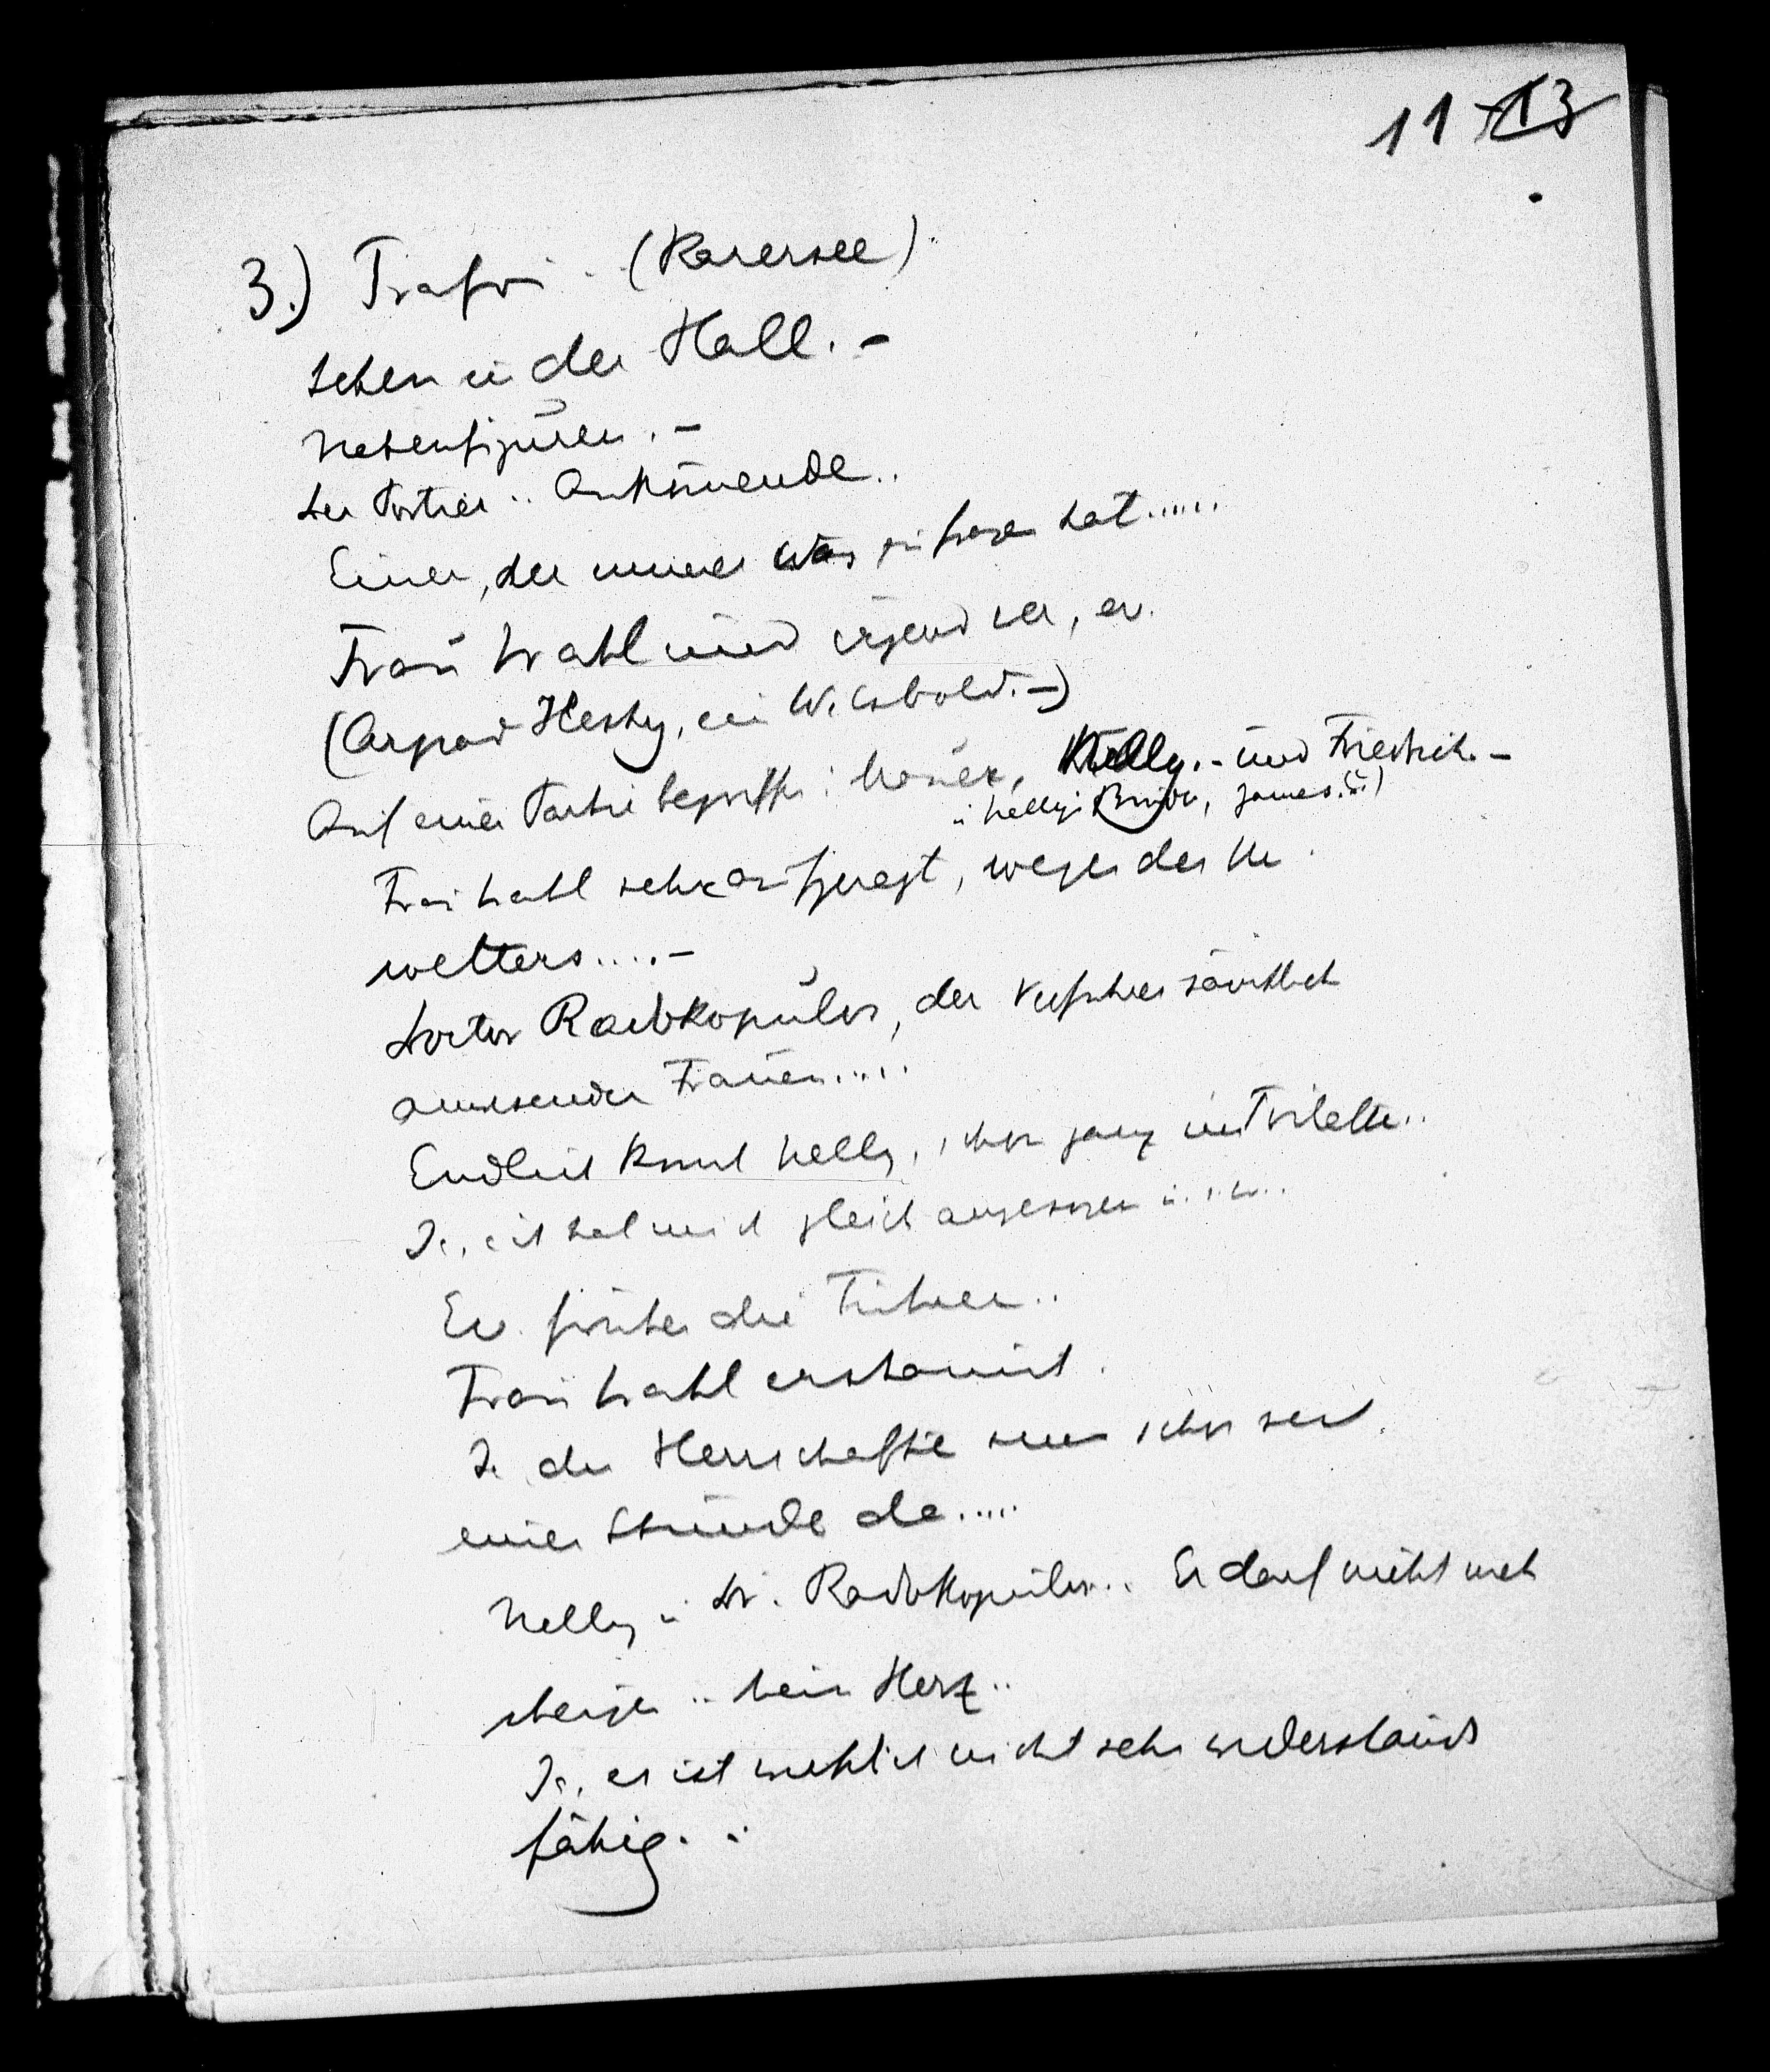 11 13
3.) Trafoi. (Karersee).
Leben in der Hall. –
Nebenfiguren. –
Der Portier.. Ankommende..
Einer, der immer was zu fragen hat......
Frau Wahl und irgend wer, ev.
(Arpad Hesky, ein
Auf einer Partie begriffen: Mauer, Nelly. – und Friedrich. –
u Nelly's Bruder, James..)
Frau Wahl sehr aufgeregt, wegen des Un
wetters..... –
Doctor Radokopulos, der Verführer sämtlich
anwesender Frauen.....
Endlich kommt Nelly, schon ganz in Toilette..
Ja, ich hab mich gleich angezogen u. s. w...
Ev. früher die Führer..
Frau Wahl erstaunt.
Ja die Herrschaften sein schon seit
einer Stunde da.....
Nelly u Dr. Radokopulos.. Er darf nicht mehr
steigen.. Sein Herz..
Ja, es ist wirklich nicht sehr widerstands
fähig. ..